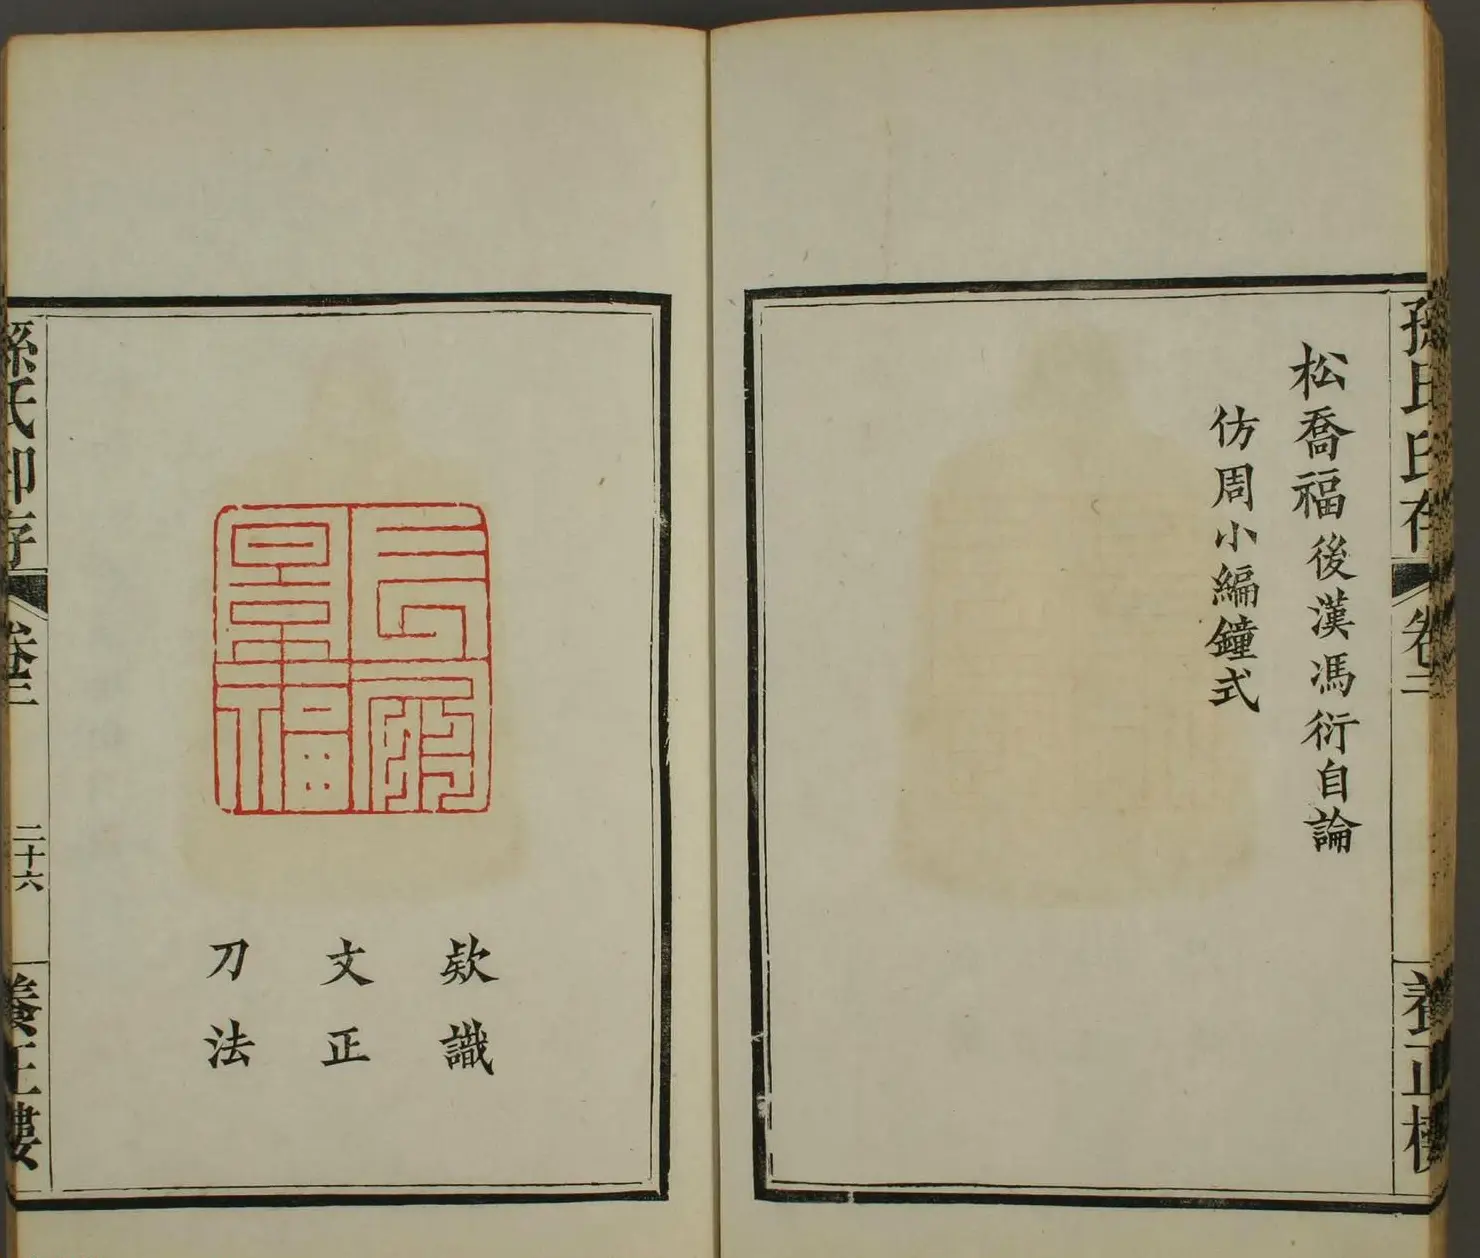 孫氏印存 卷二 養正樓
松喬福後漢馮衍自論
仿周小編鐘式
欵識
文正
刀法
孫氏印存 卷二 二十六 養正樓